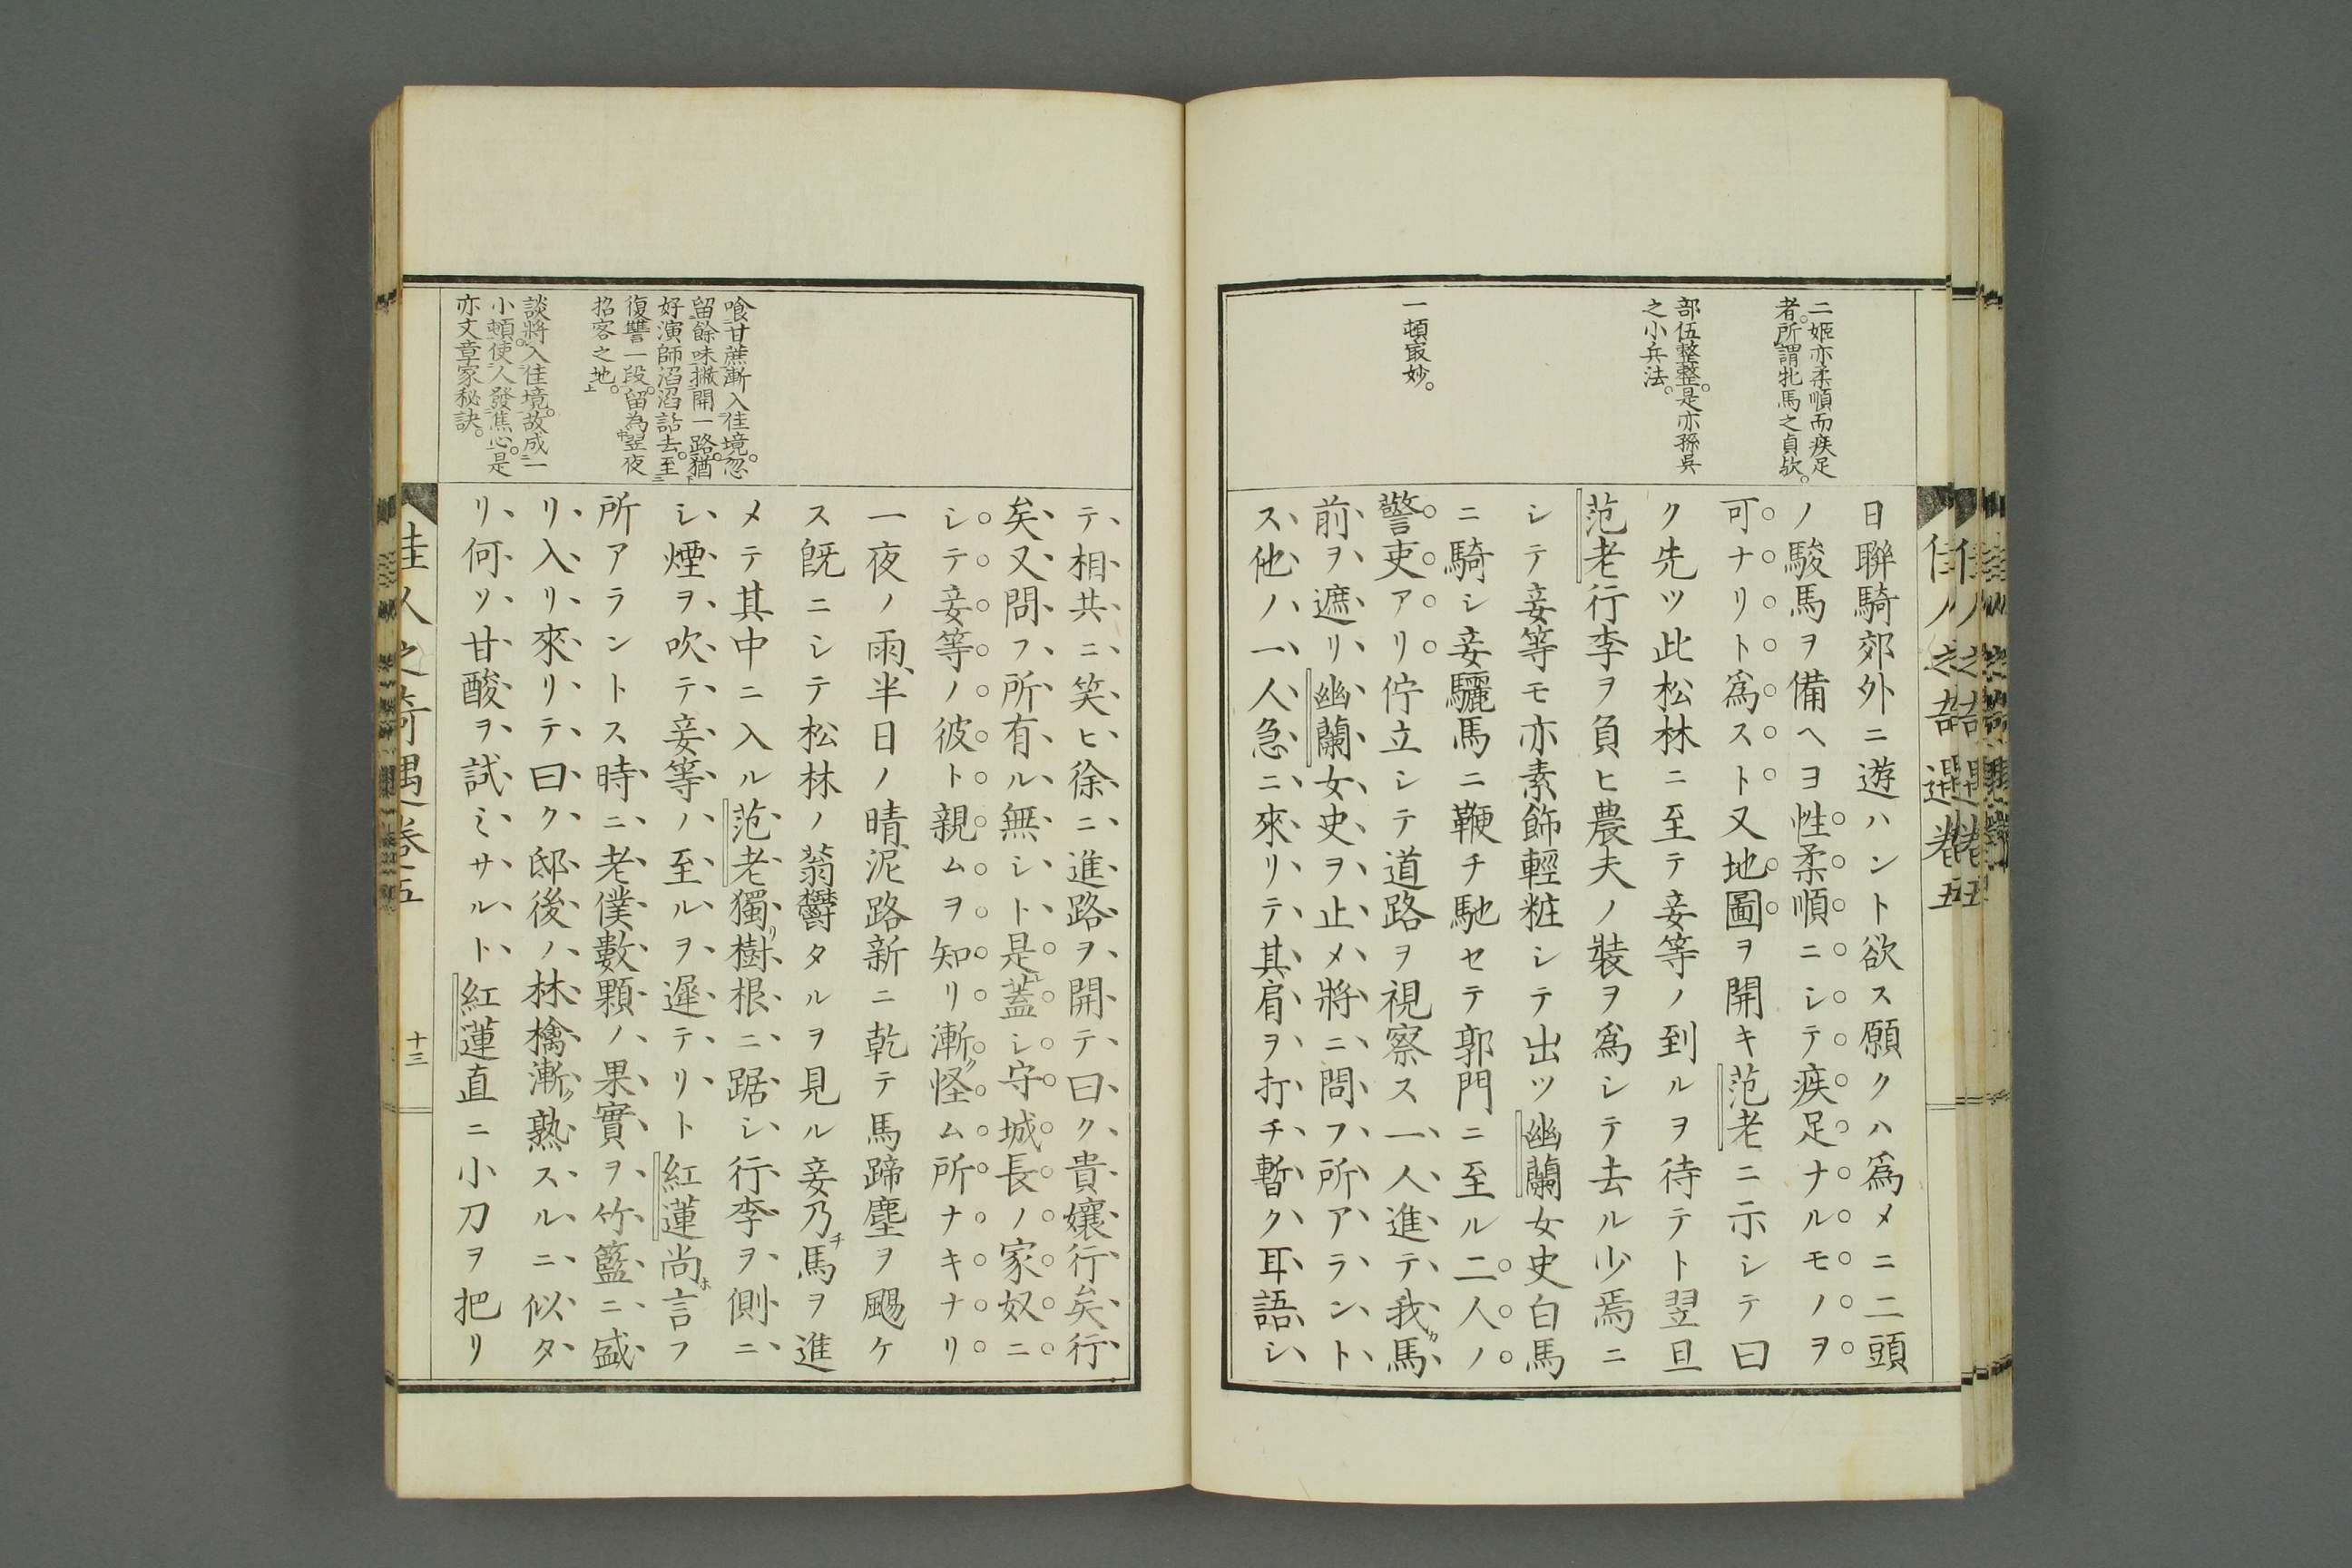 二姬亦柔順而疾足
者。所謂牝馬之貞歟。
部伍整整。是亦孫吳
之小兵法。
一頓最妙。
日聯騎郊外ニ遊ハント欲ス願クハ爲メニ二頭
ノ駿馬ヲ備ヘヨ性柔順ニシテ疾足ナルモノヲ
可ナリト爲スト又地圖ヲ開キ范老ニ示シテ曰
ク先ツ此松林ニ至テ妾等ノ到ルヲ待テト翌旦
范老行李ヲ負ヒ農夫ノ裝ヲ爲シテ去ル少焉ニ
シテ妾等モ亦素飾輕粧シテ出ツ幽蘭女史白馬
ニ騎シ妾驪馬ニ鞭チ馳セテ郭門ニ至ル二人ノ
警吏アリ佇立シテ道路ヲ視察ス一人進テ我カ馬
前ヲ遮リ幽蘭女史ヲ止メ將ニ問フ所アラント
ス他ノ一人急ニ來リテ其肩ヲ打チ暫ク耳語シ
喰甘蔗漸入佳境。忽
留餘味撇開一路。猶
好演師滔滔話去。至
復讐一段。留為翌夜
招客之地。
談將入佳境。故成一
小頓。使人發焦心。是
亦文章家秘訣。
テ相共ニ笑ヒ徐ニ進路ヲ開テ曰ク貴孃行矣行
矣又問フ所有ル無シト是レ蓋シ守城長ノ家奴ニ
シテ妾等ノ彼ト親ムヲ知リ漸ク怪ム所ナキナリ
一夜ノ雨、半日ノ晴、泥路新ニ乾テ馬蹄塵ヲ颺ケ
ス既ニシテ松林ノ蓊鬱タルヲ見ル妾乃チ馬ヲ進
メテ其中ニ入ル范老獨リ樹根ニ踞シ行李ヲ側ニ
シ煙ヲ吹テ妾等ノ至ルヲ遲テリト紅蓮尚ホ言フ
所アラントス時ニ老僕數顆ノ果實ヲ竹籃ニ盛
リ入リ來リテ曰ク邸後ノ林檎漸ク熟スルニ似タ
リ何ソ甘酸ヲ試ミサルト紅蓮直ニ小刀ヲ把リ
佳人之奇遇卷五
十三